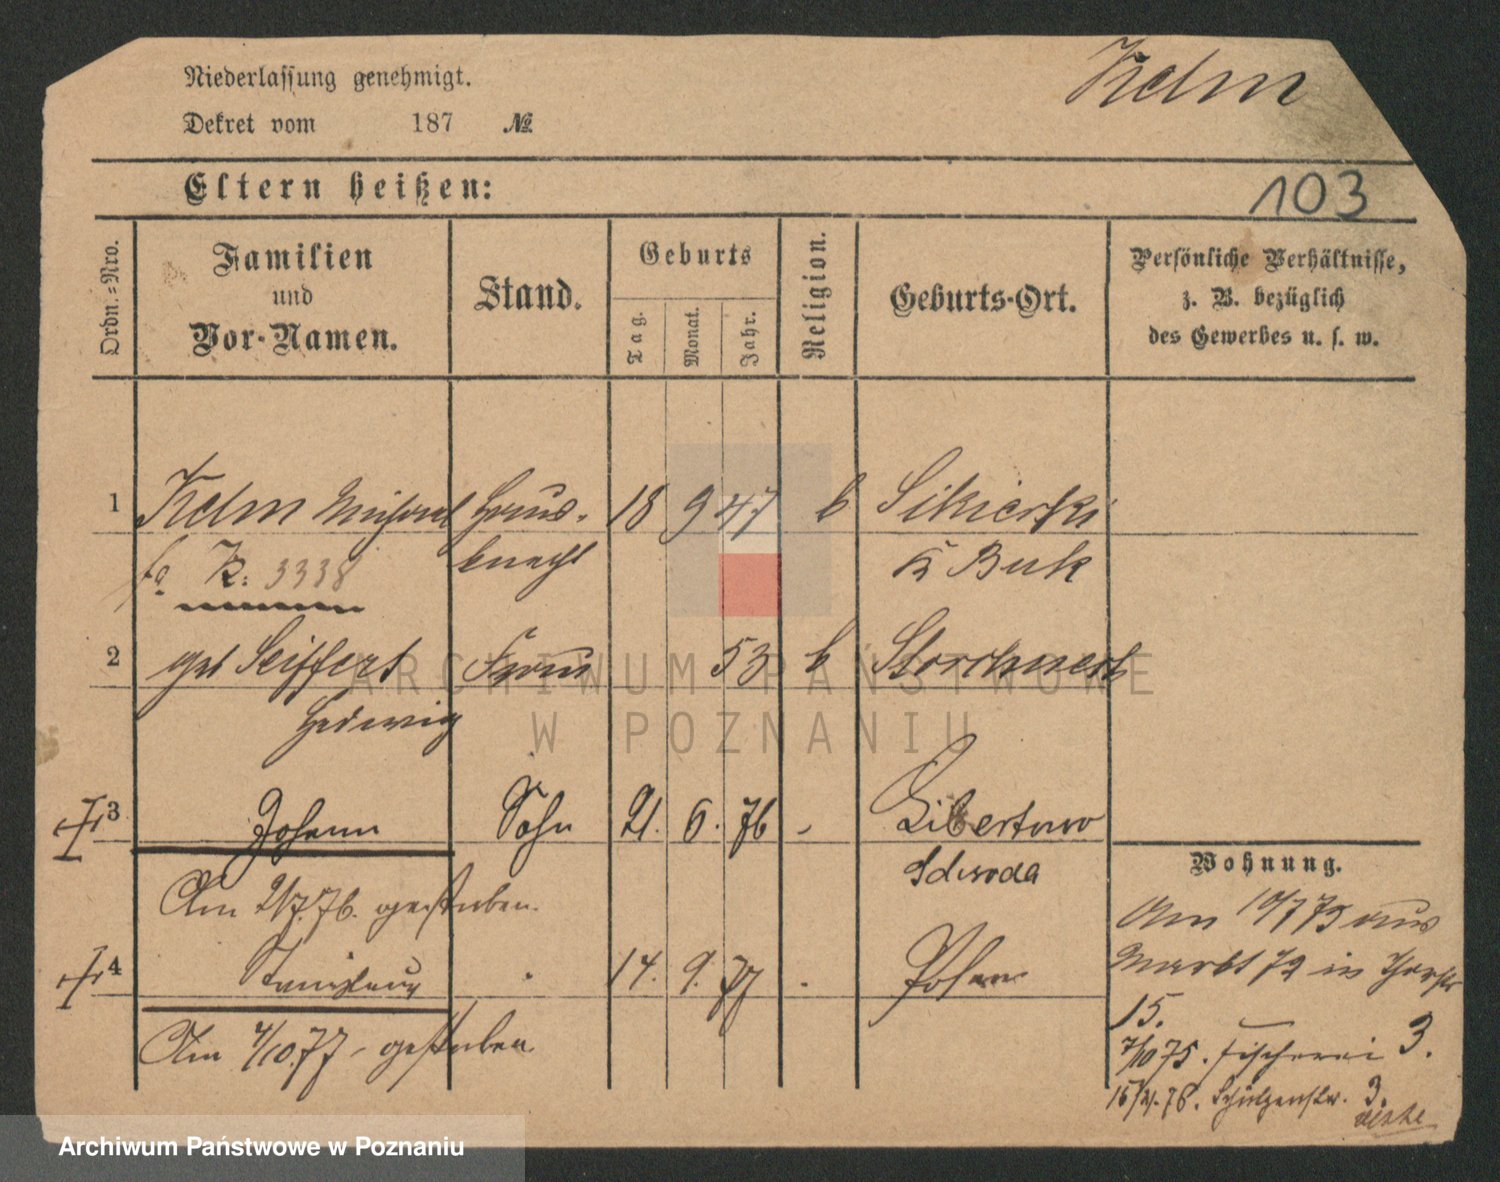 Niederlassung genehmigt.
Kelm
Dekret vom 187 №
Eltern heißen:
103
Ordn.-Nro.
Familien und Vor-Namen.
Stand.
Geburts
Tag.
Monat.
Jahr.
Religion.
Geburts-Ort.
Persönliche Verhältnisse, z. B. bezüglich des Gewerbes u. s. w.
1 Kelm Michael Haus- 18 9 47 k Sikierki
K: 3338 knecht K Buk
2 geb Seiffert Frau 53 k Storchnest
Hedwig
3 Johann Sohn 21. 6. 76 - Libertowo
Schroda
Wohnung.
Am 2/7.76. gestorben.
Am 10/7 75 aus
4 Stanislaus 14. 9. 77 Posen
Markt 72 in
15.
Am 4/10.77 - gestorben
7/10 75. Fischerei 3.
78. Schützenstr. 3.
ARCHIWUM PAŃSTWOWE
W POZNANIU
Archiwum Państwowe w Poznaniu